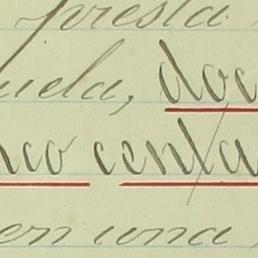 presta
uela, doc
nco centa
en una